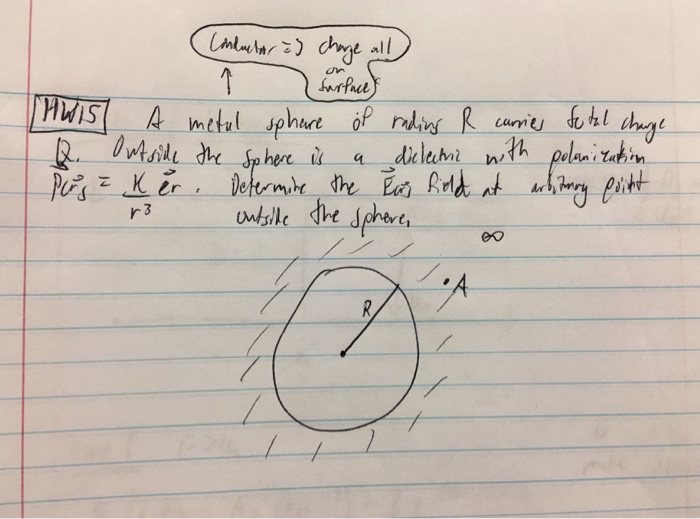 Conductor => charge all
on
surface
HW15 A metal sphere of radius R carries total charge
Q. Outside the sphere is a dielectric with polarization
P(r) = K/r³ er. Determine the E(r) field at arbitrary point
outside the sphere.
∞
A
R